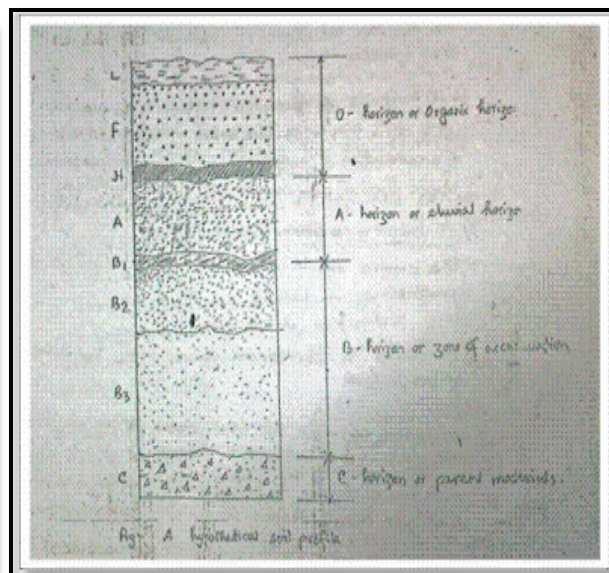 L
F
H
A
B1
B2
B3
C
O - horizon or Organic horizo
A - horizon or eluvial horizo
B - horizon or zone of accumulation
C - horizon or parent materials.
Fig:- A hypothetical soil profile